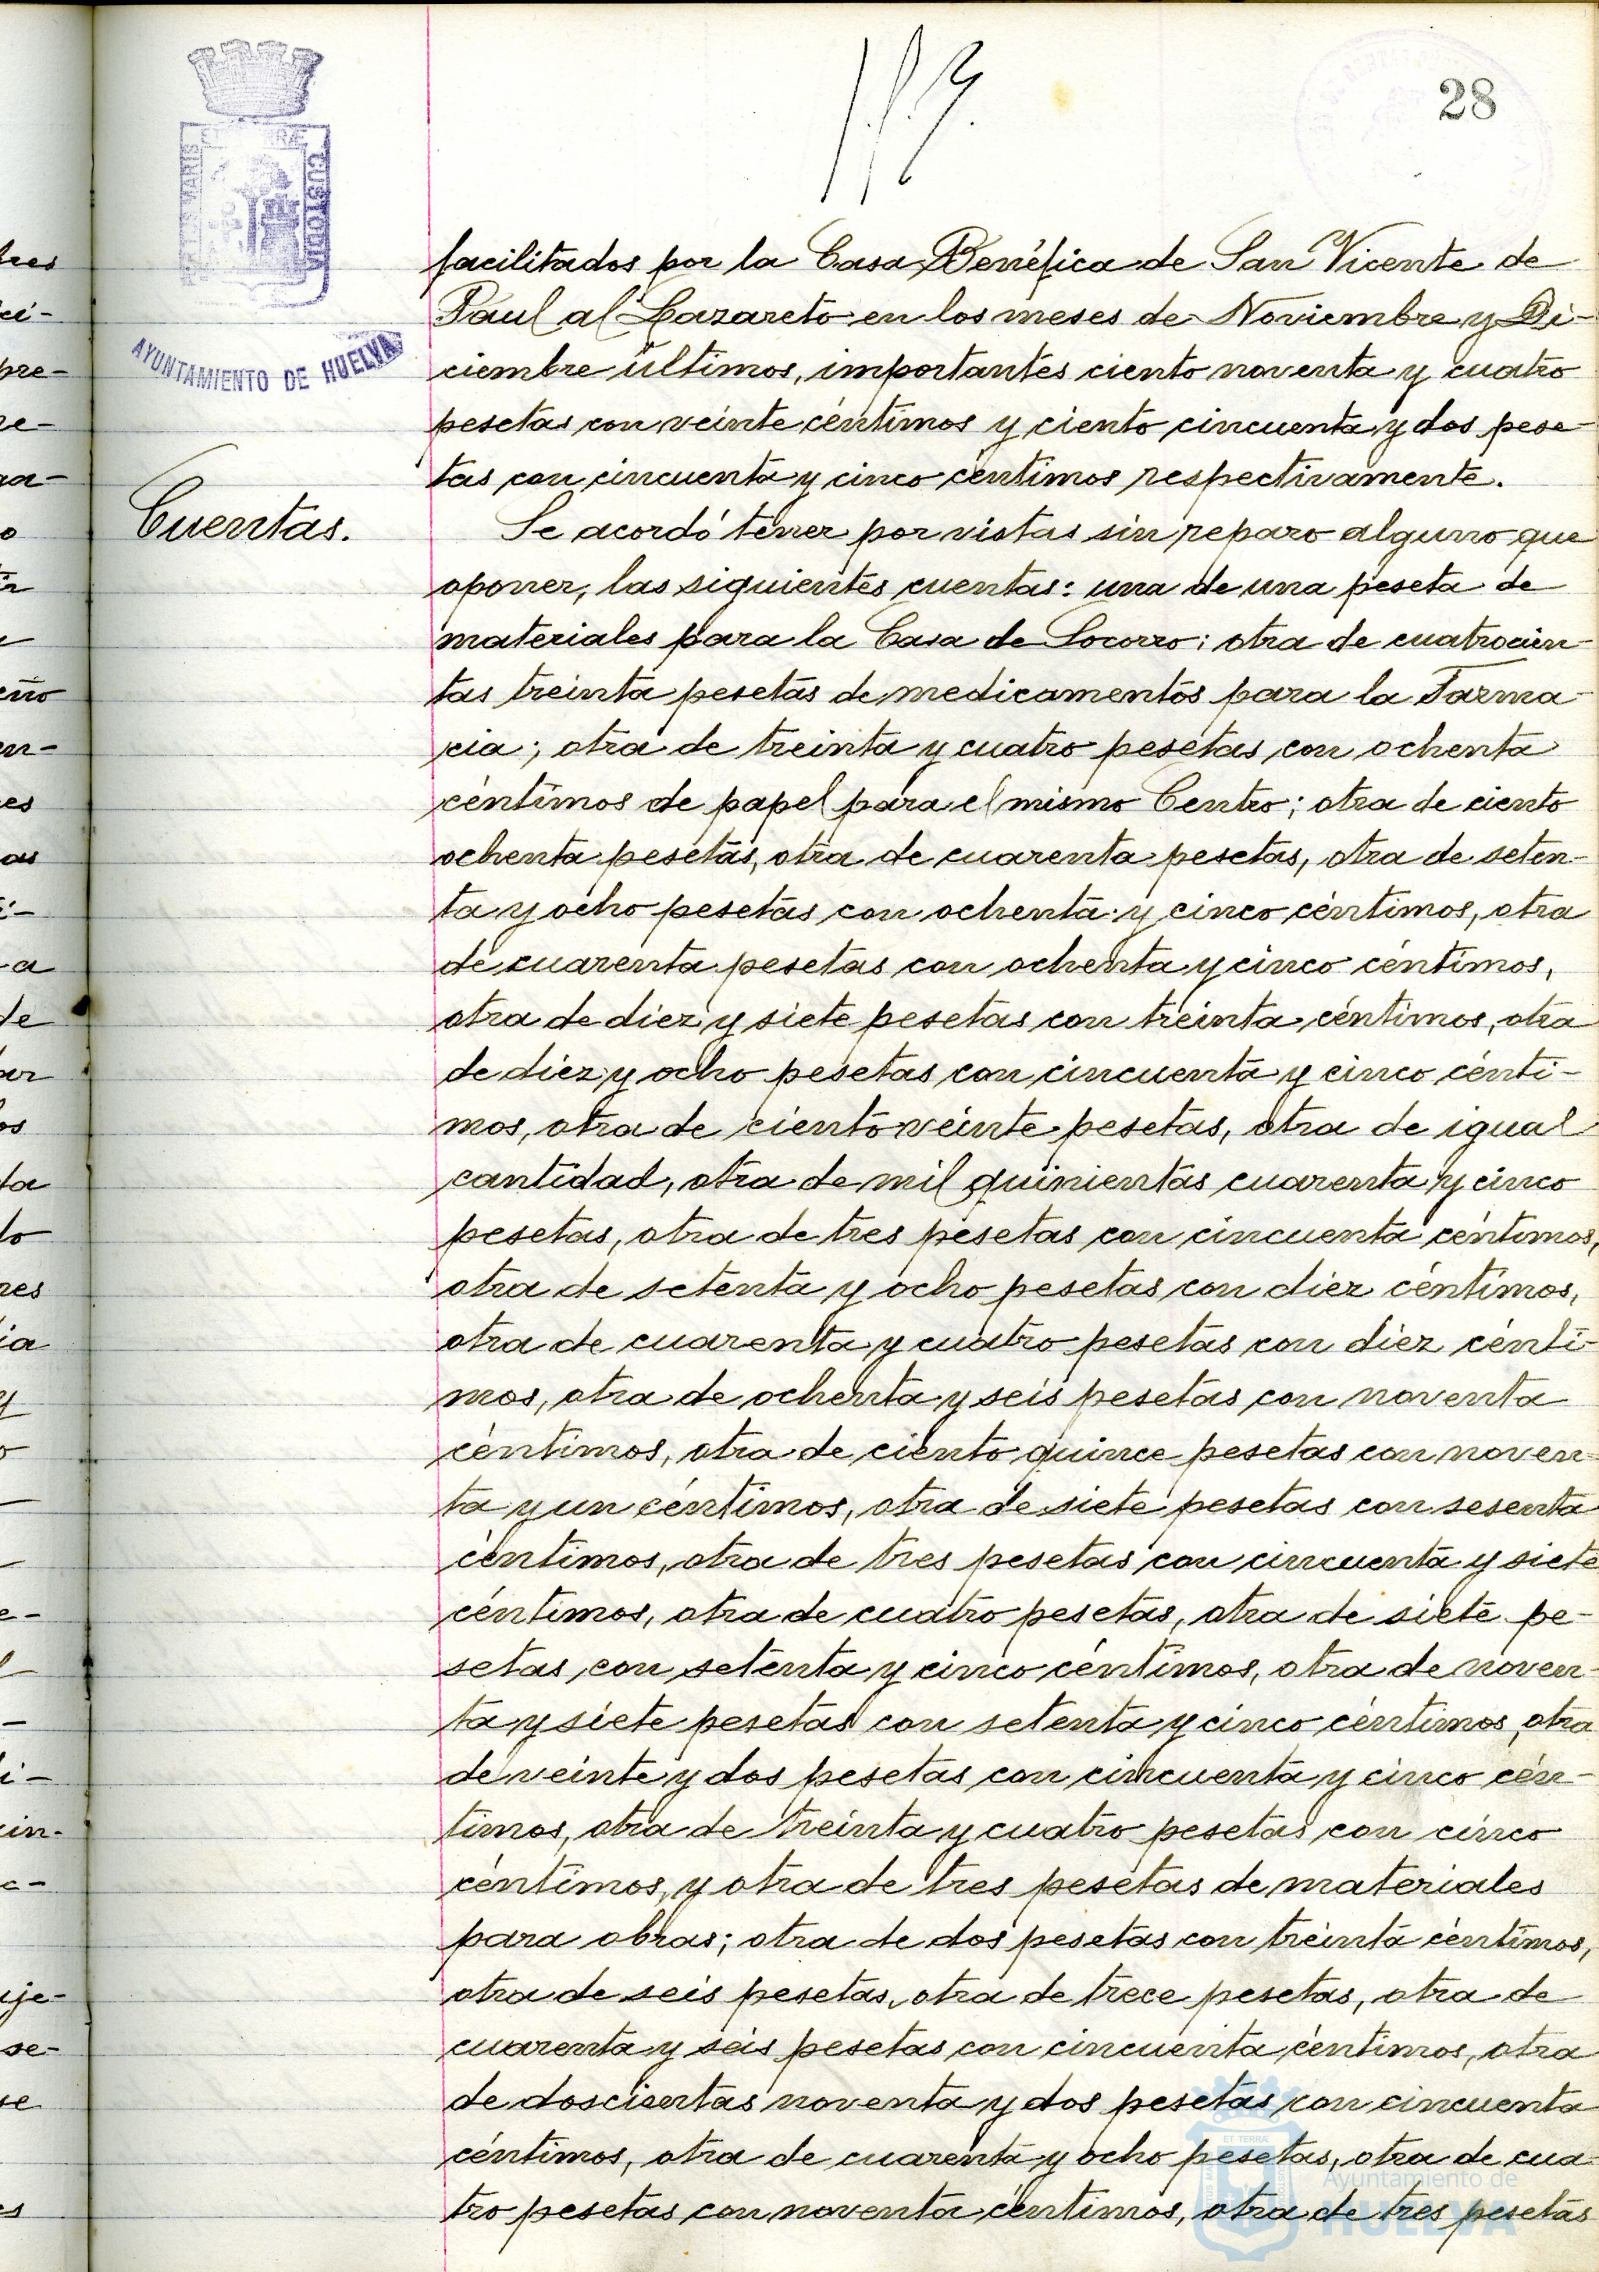 28
AYUNTAMIENTO DE HUELVA
CUSTODIA
facilitados por la Casa Benéfica de San Vicente de
Paul al Lazareto en los meses de Noviembre y Di-
ciembre últimos, importantes ciento noventa y cuatro
pesetas con veinte céntimos y ciento cincuenta y dos pese-
tas con cincuenta y cinco céntimos respectivamente.
Cuentas.
Se acordó tener por vistas sin reparo alguno que
oponer, las siguientes cuentas: una de una peseta de
materiales para la Casa de Socorro; otra de cuatrocien-
tas treinta pesetas de medicamentos para la Farma-
cia; otra de treinta y cuatro pesetas con ochenta
céntimos de papel para el mismo Centro; otra de ciento
ochenta pesetas, otra de cuarenta pesetas, otra de seten-
ta y ocho pesetas con ochenta y cinco céntimos, otra
de cuarenta pesetas con ochenta y cinco céntimos,
otra de diez y siete pesetas con treinta céntimos, otra
de diez y ocho pesetas con cincuenta y cinco cénti-
mos, otra de ciento veinte pesetas, otra de igual
cantidad, otra de mil quinientas cuarenta y cinco
pesetas, otra de tres pesetas con cincuenta céntimos,
otra de setenta y ocho pesetas con diez céntimos,
otra de cuarenta y cuatro pesetas con diez cénti-
mos, otra de ochenta y seis pesetas con noventa
céntimos, otra de ciento quince pesetas con noven-
ta y un céntimos, otra de siete pesetas con sesenta
céntimos, otra de tres pesetas con cincuenta y siete
céntimos, otra de cuatro pesetas, otra de siete pe-
setas con setenta y cinco céntimos, otra de noven-
ta y siete pesetas con setenta y cinco céntimos, otra
de veinte y dos pesetas con cincuenta y cinco cén-
timos, otra de treinta y cuatro pesetas con cinco
céntimos, y otra de tres pesetas de materiales
para obras; otra de dos pesetas con treinta céntimos,
otra de seis pesetas, otra de trece pesetas, otra de
cuarenta y seis pesetas con cincuenta céntimos, otra
de doscientas noventa y dos pesetas con cincuenta
céntimos, otra de cuarenta y ocho pesetas, otra de cua-
tro pesetas con noventa céntimos, otra de tres pesetas
Ayuntamiento de
HUELVA